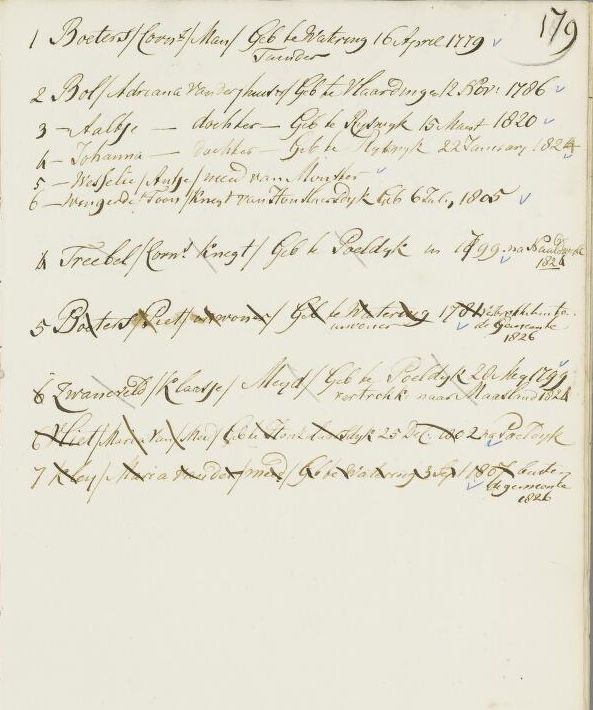 179
1 Boeters / Corns / Man / Geb te Watering 16 April 1779
Tuinder
2 Bol / Adriana van der / vrouw / Geb te Vlaardinge 12 Nov: 1786
3 - Aaltje - dochter - Geb te Ryswyk 15 Maart 1820
4 - Johanna - dochter - Geb te Ryswyk 22 January 1824
5 - Wesselie / Antje / meid van Munster
6 - Wengerde Toon / Knegt van Honslaersdyk Geb 6 July 1805
4 Treebel / Corns Knegt / Geb te Poeldyk in 1799 na
1824
5 Boeters / Piet / inwoner / Geb te Watering 1781
inwoner de Gemeente
1826
6 Zwaneveld / Klaasje / Meyd / Geb te Poeldyk 20 Mey 1799
vertrokke naar Maasland 1824
6 Vliet / Maria van / Meid / Geb te Honslaersdyk 25 Dec: Poeldyk
7 Kley / Maria van der / meid / Geb te Watering 3 Sept 1807 buiten
de gemeente
1826